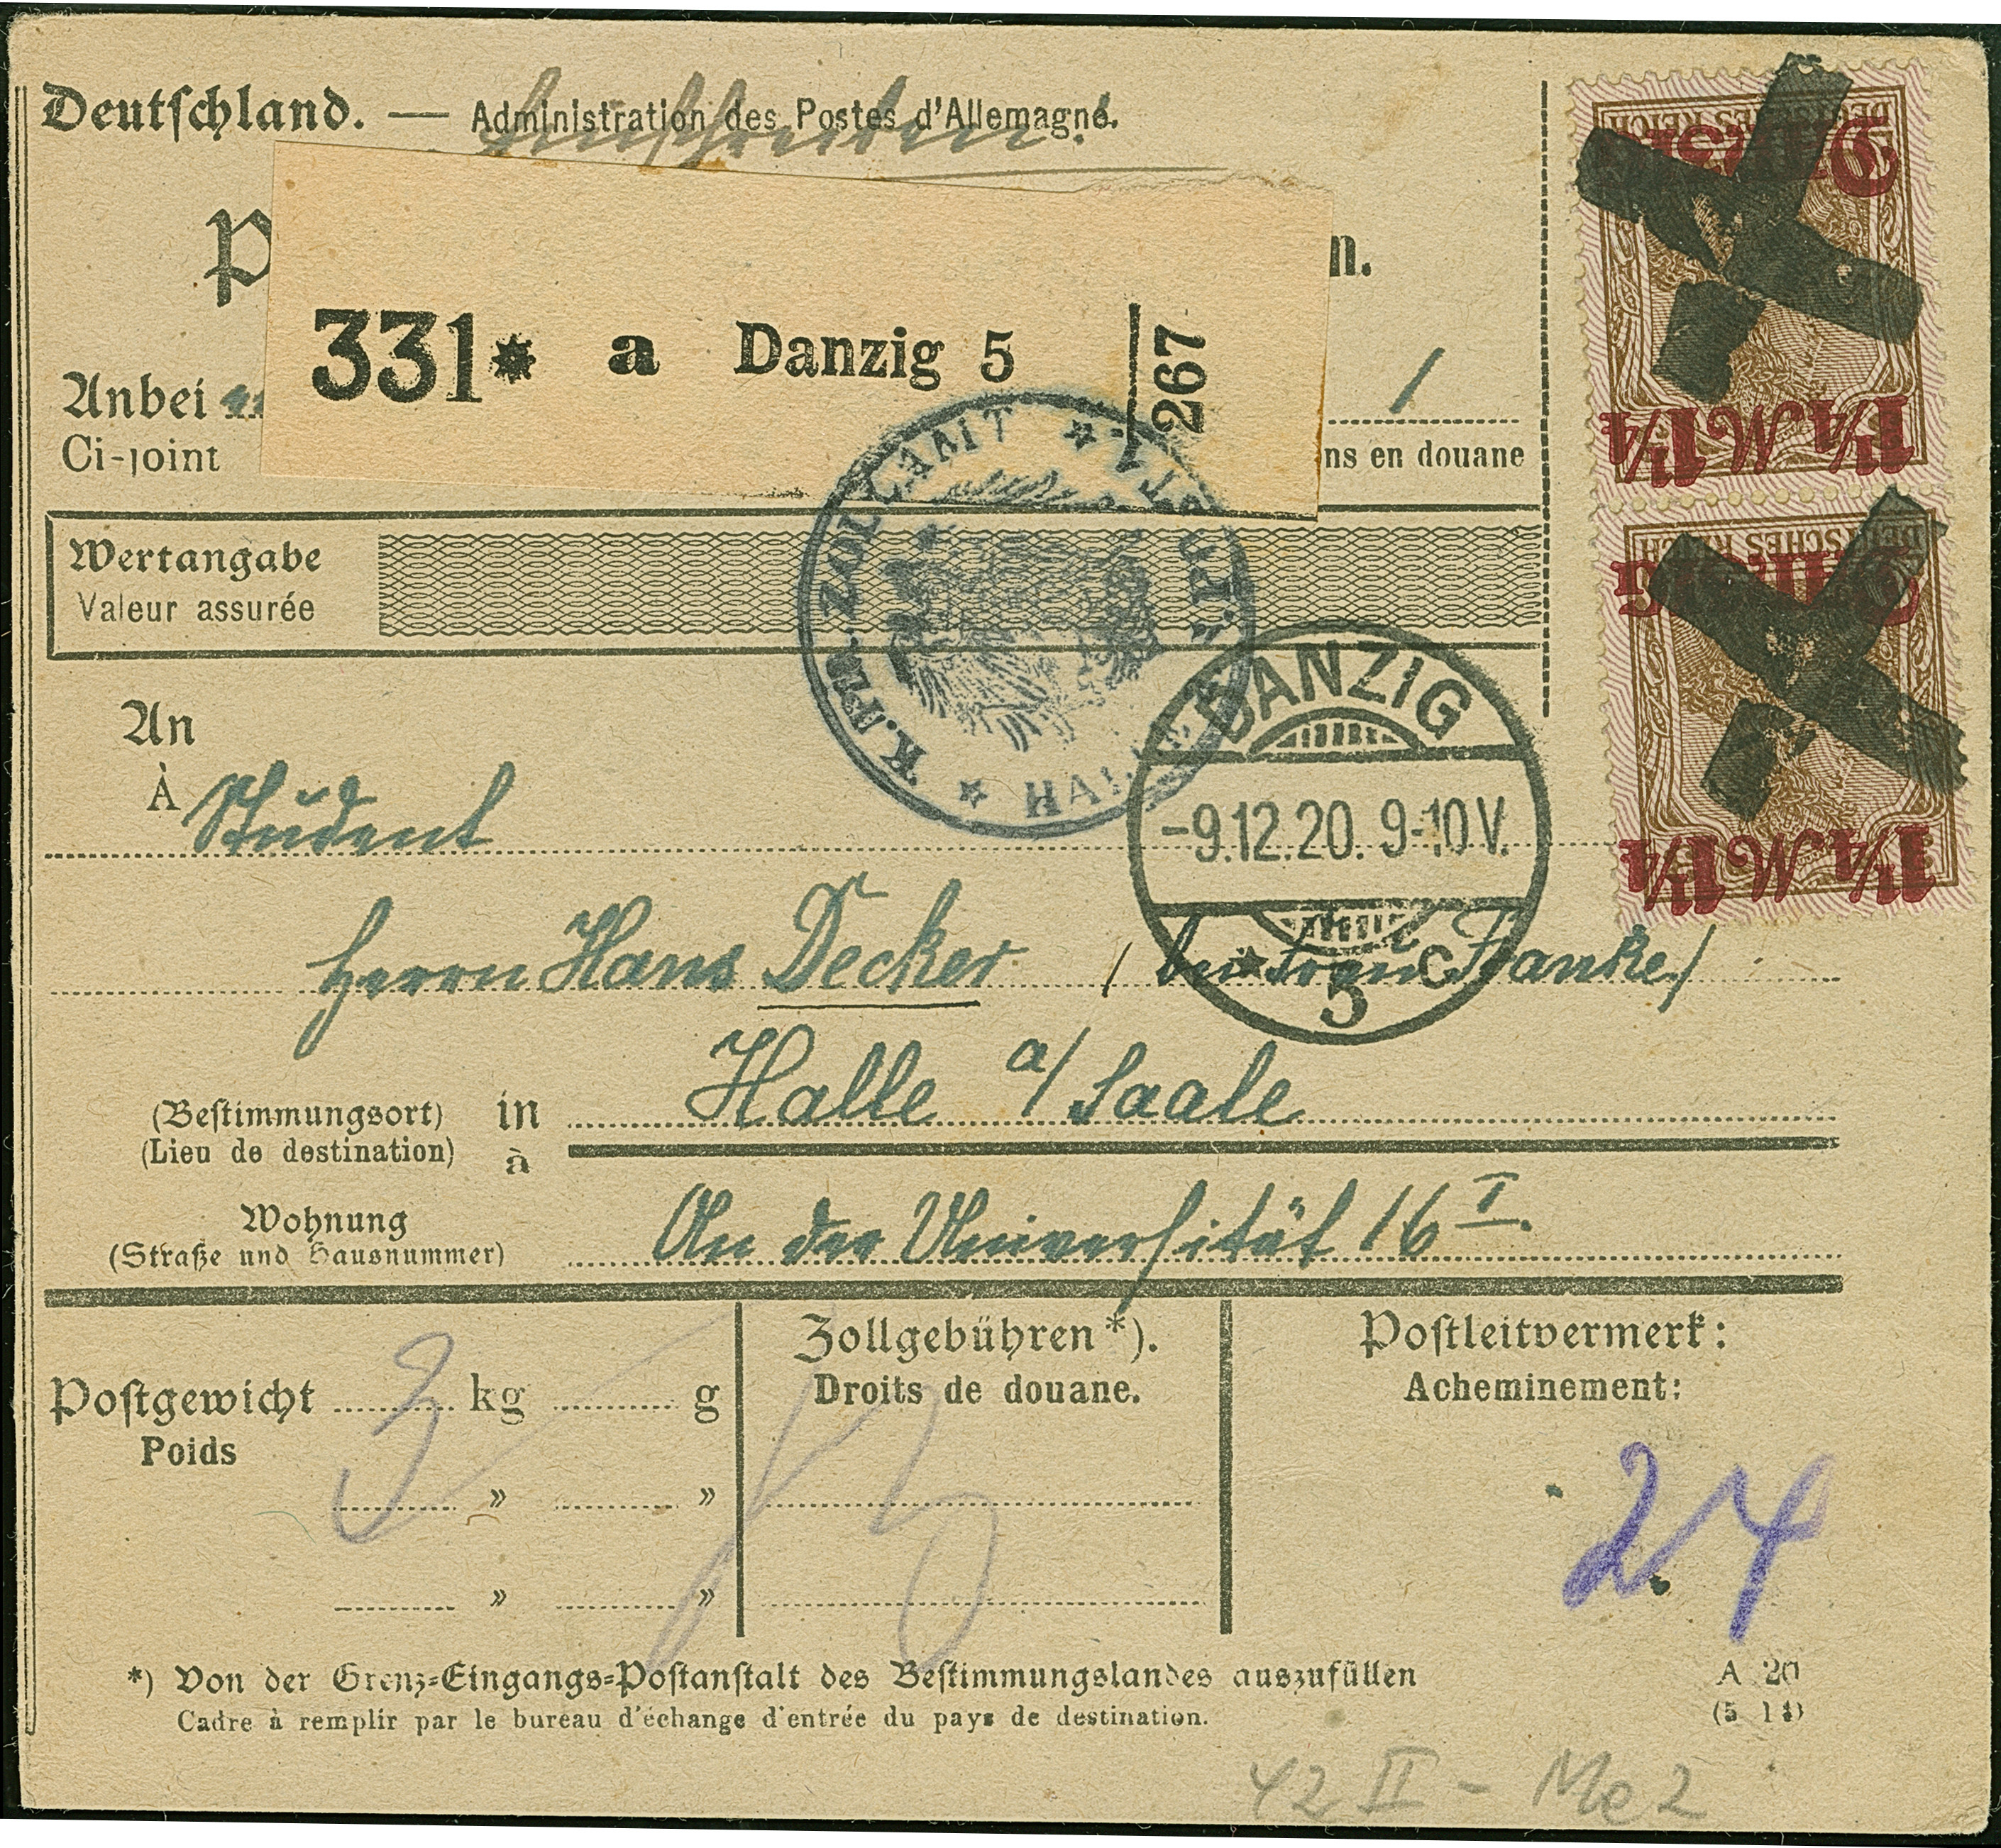 Deutschland. — Administration des Postes d'Allemagne.
Einschreiben!
P
n.
331* a Danzig 5
267
Anbei
/
Ci-joint
ns en douane
Wertangabe
Valeur assurée
K.PR. ZOLLAMT
HALLE
DANZIG
-9.12.20. 9-10 V.
* 5 c
DEUTSCHES REICH
Danzig
1¼ M 1¼
DEUTSCHES REICH
Danzig
1¼ M 1¼
An
À Student
Herrn Hans Decker (bei Frau Hanke)
(Bestimmungsort) in Halle a/Saale
(Lieu de destination) à
Wohnung
(Straße und Hausnummer) An der Universität 16 I.
Postgewicht 3 kg g
Poids
» »
» »
Zollgebühren*).
Droits de douane.
Postleitvermerk:
Acheminement:
24
*) Von der Grenz-Eingangs-Postanstalt des Bestimmungslandes auszufüllen
Cadre à remplir par le bureau d'échange d'entrée du pays de destination.
A 20
(5 14)
42 II - Me 2